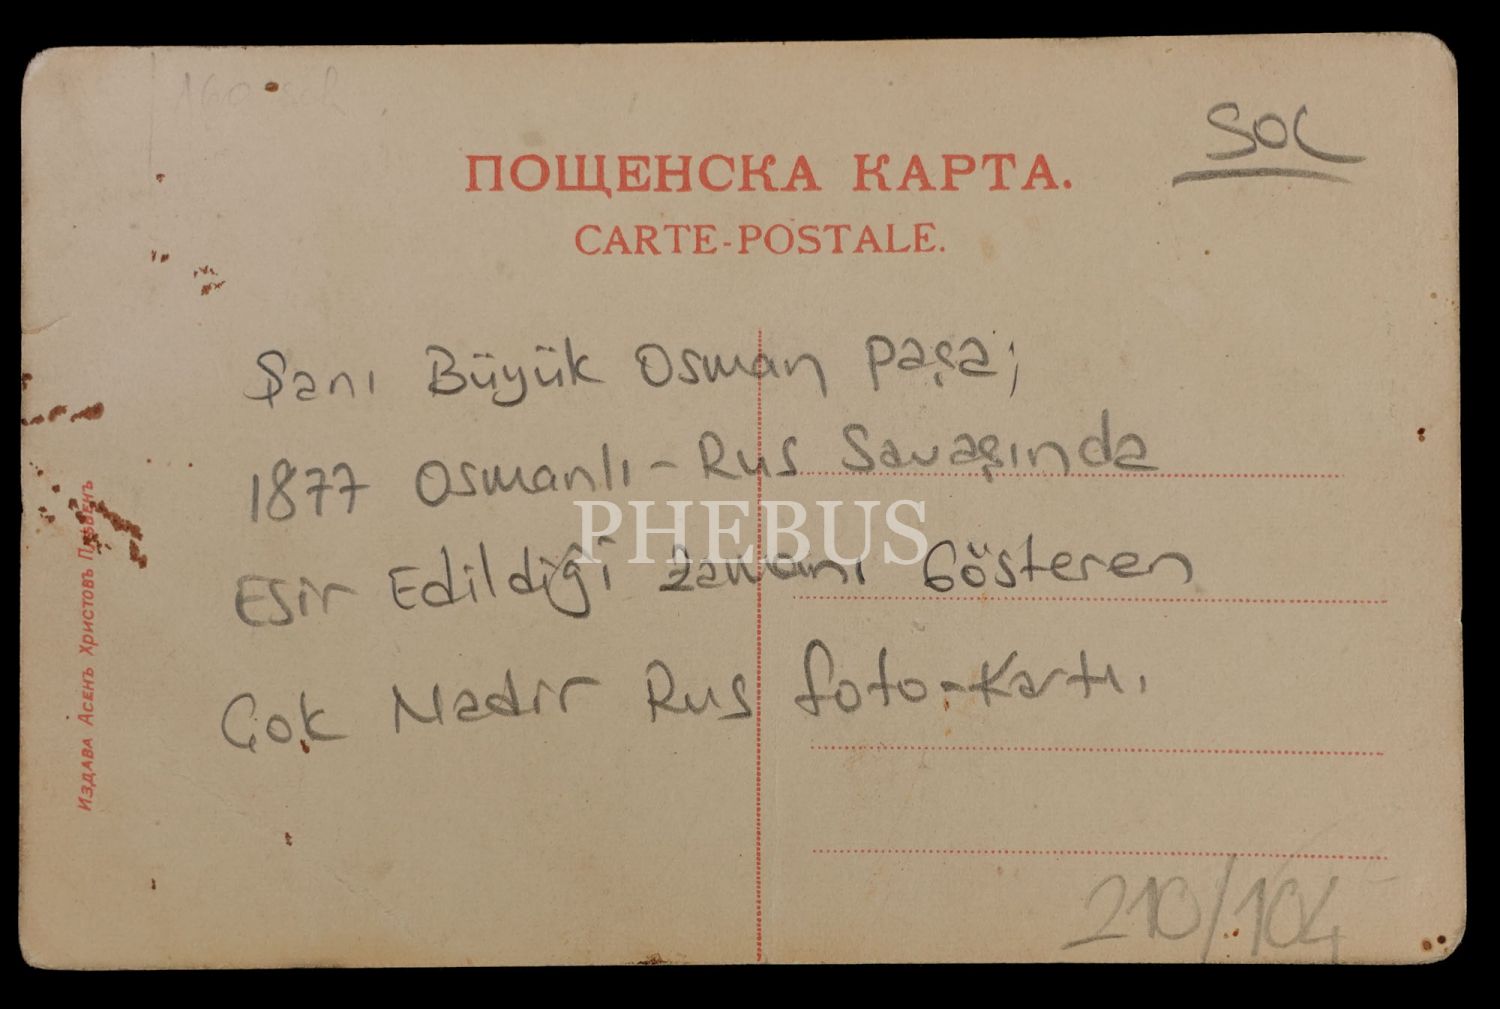 SOC
ПОЩЕНСКА КАРТА.
CARTE-POSTALE.
Şanı Büyük Osman Paşa;
1877 Osmanlı-Rus Savaşında
PHEBUS
Esir Edildiği zamanı Gösteren
Çok Nadir Rus foto-Kartı.
Издава Асенъ Христовъ Плѣвенъ
210/104